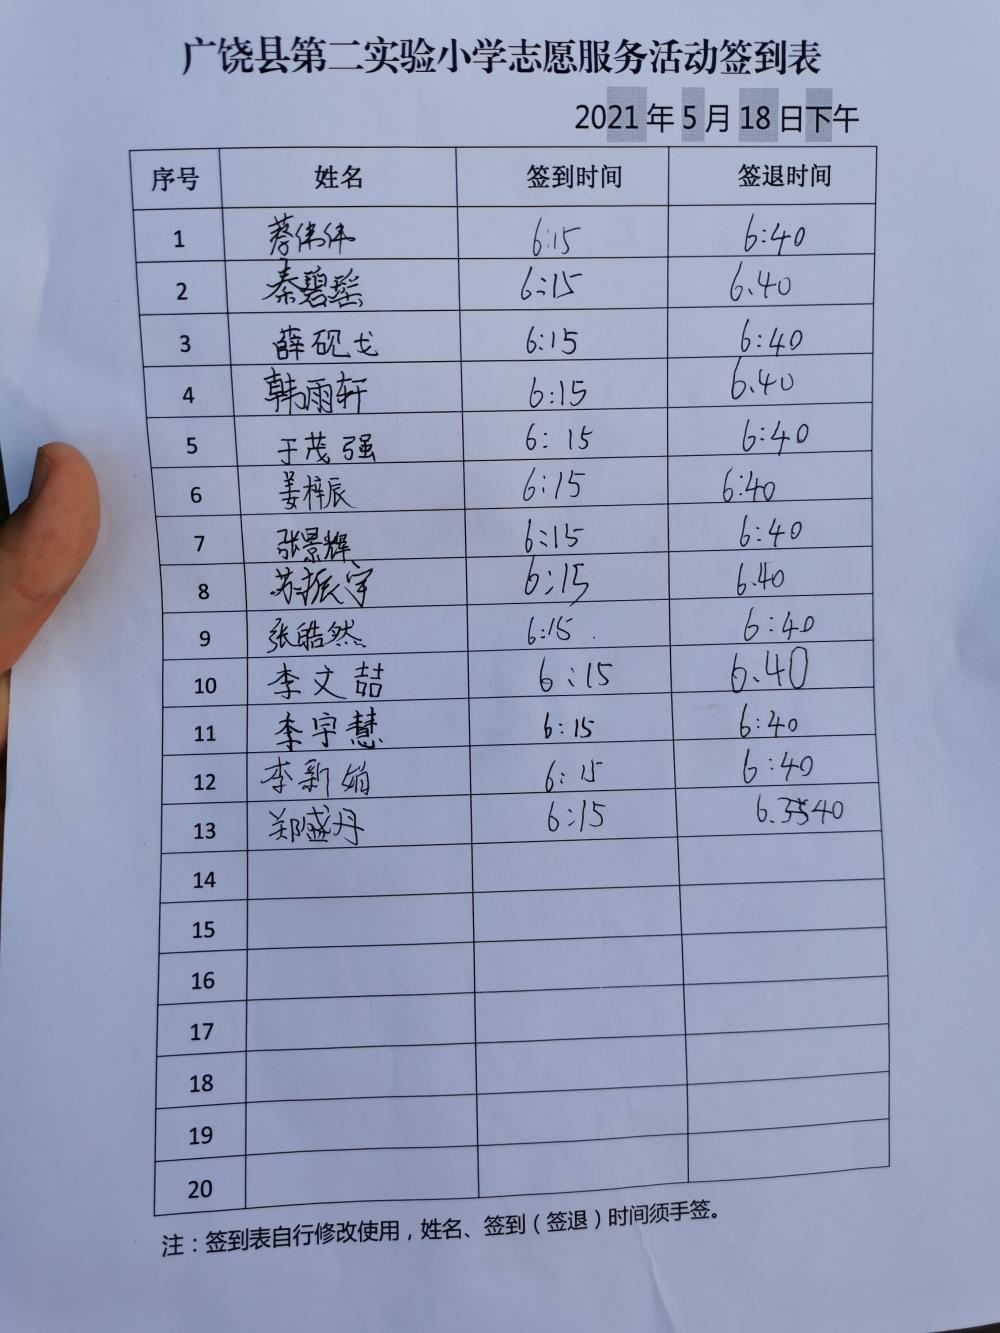 广饶县第二实验小学志愿服务活动签到表
2021年5月18日下午
序号 姓名 签到时间 签退时间
1 蔡伟伟 6:15 6:40
2 秦碧瑶 6:15 6.40
3 薛砚戈 6:15 6:40
4 韩雨轩 6:15 6.40
5 于茂强 6:15 6:40
6 姜梓辰 6:15 6:40
7 张景辉 6:15 6:40
8 苏振宇 6:15 6.40
9 张皓然 6:15 6:40
10 李文喆 6:15 6.40
11 李宇慧 6:15 6:40
12 李新娟 6:15 6:40
13 郑盛丹 6:15 6.3540
14
15
16
17
18
19
20
注：签到表自行修改使用，姓名、签到（签退）时间须手签。